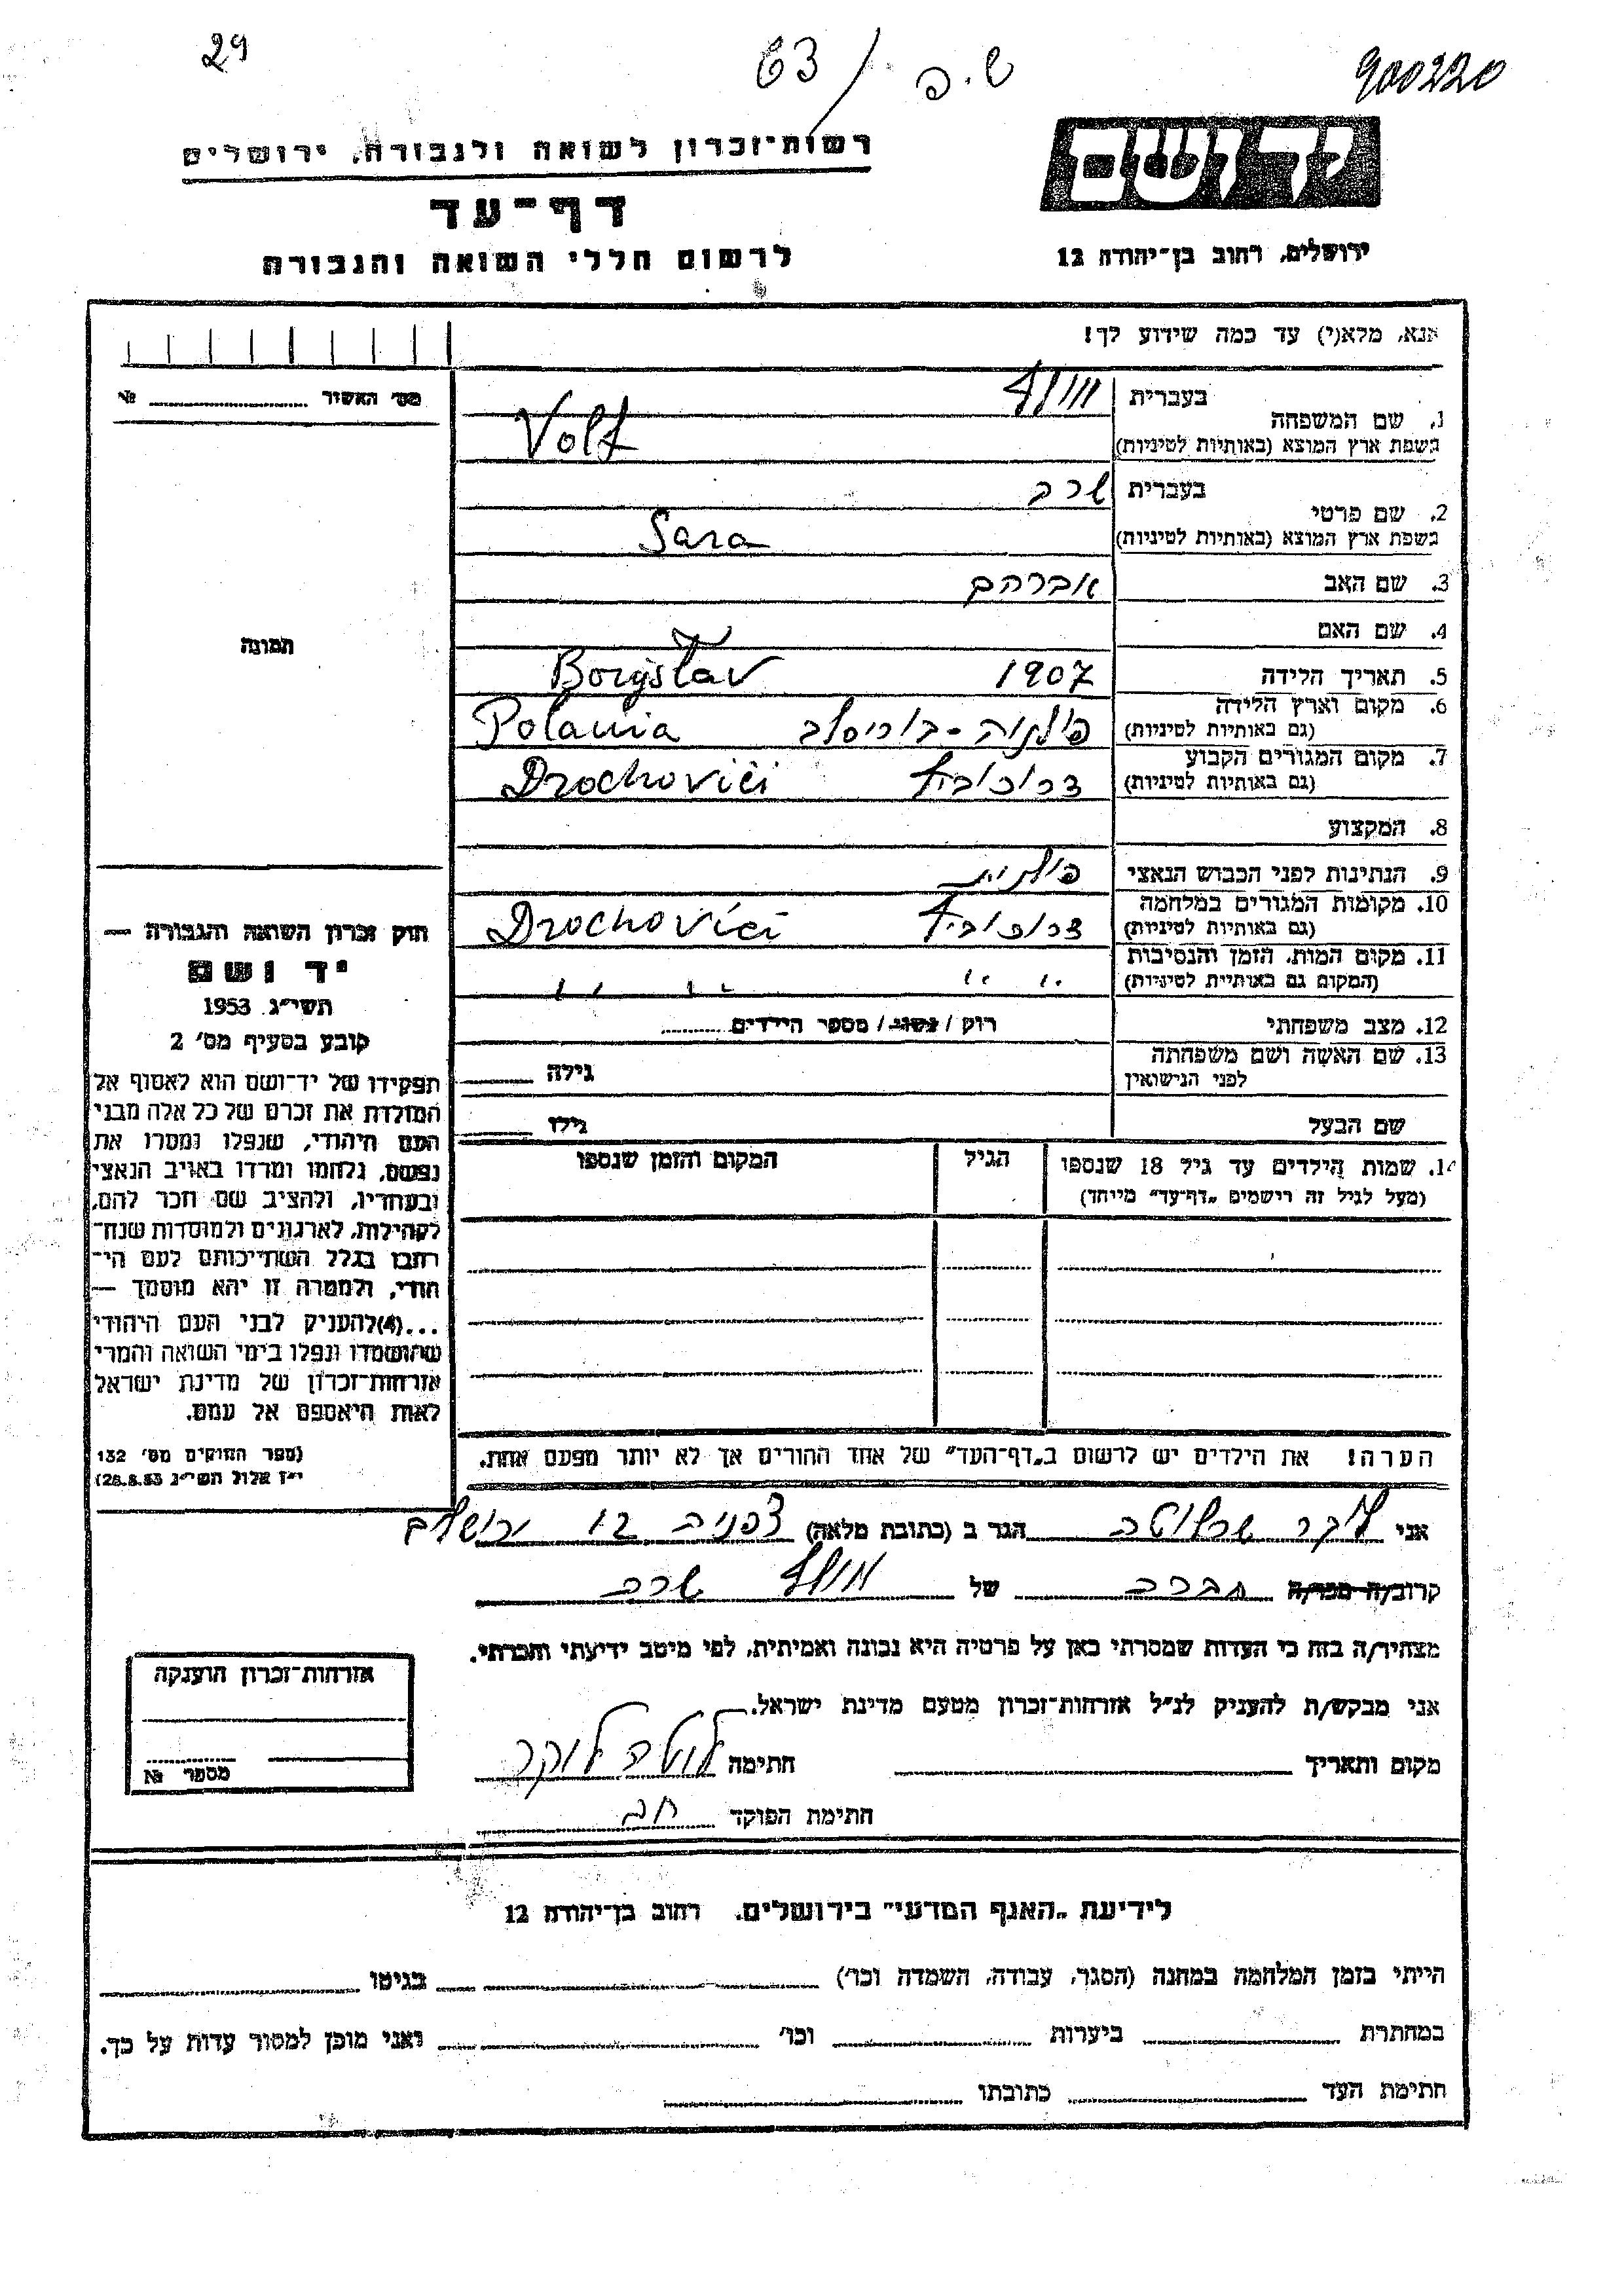 29
63 / ש.פ
900220
רשות־זכרון לשואה ולגבורה, ירושלים
דף־עד
לרשום חללי השואה והגבורה
יד ושם
ירושלים, רחוב בן־יהודה 12
אנא, מלא(י) עד כמה שידוע לך!
מס׳ האשור №
1. שם המשפחה
בעברית וולף
בשפת ארץ המוצא (באותיות לטיניות) Volf
2. שם פרטי
בעברית שרה
בשפת ארץ המוצא (באותיות לטיניות) Sara
3. שם האב אברהם
4. שם האם
5. תאריך הלידה 1907
6. מקום וארץ הלידה
(גם באותיות לטיניות) פולניה - בוריסלב Borÿslav Polania
7. מקום המגורים הקבוע
(גם באותיות לטיניות) דרוכוביץ Drochovići
8. המקצוע
9. הנתינות לפני הכבוש הנאצי פולנית
10. מקומות המגורים במלחמה
(גם באותיות לטיניות) דרוכוביץ Drochovíci
11. מקום המות, הזמן והנסיבות
(המקום גם באותיית לטיניות) ״ ״ ״ ״
12. מצב משפחתי רוק / נשוי / מספר הילדים
13. שם האשה ושם משפחתה
לפני הנישואין גילה
שם הבעל גילו
14. שמות הילדים עד גיל 18 שנספו הגיל המקום והזמן שנספו
(מעל לגיל זה רישמים „דף־עד״ מייחד)
הערה! את הילדים יש לרשום ב„דף־העד״ של אחד ההורים אך לא יותר מפעם אחת.
תמונה
חוק זכרון השואה והגבורה —
יד ושם
תשי״ג 1953
קובע בסעיף מס׳ 2
תפקידו של יד־ושם הוא לאסוף אל
המולדת את זכרם של כל אלה מבני
העם היהודי, שנפלו ומסרו את
נפשם, נלחמו ומרדו באויב הנאצי
ובעוזריו, ולהציב שם וזכר להם,
לקהילות, לארגונים ולמוסדות שנח־
רבו בגלל השתייכותם לעם הי־
הודי, ולמטרה זו יהא מוסמך —
...(4) להעניק לבני העם היהודי
שהושמדו ונפלו בימי השואה והמרי
אזרחות־זכרון של מדינת ישראל
לאות היאספם אל עמם.
(ספר החוקים מס׳ 132
י״ז אלול תשי״ג 28.8.53)
אני לוקר שרלוטה הגר ב (כתובת מלאה) צפניה 12 ירושלים
קרוב/ה מכר/ה חברה של וולף שרה
מצהיר/ה בזה כי העדות שמסרתי כאן על פרטיה היא נכונה ואמיתית, לפי מיטב ידיעתי והכרתי.
אני מבקש/ת להעניק לנ״ל אזרחות־זכרון מטעם מדינת ישראל.
מקום ותאריך חתימה לוטה לוקר
חתימת הפוקד
אזרחות־זכרון הוענקה
מספר №
לידיעת „האגף המדעי״ בירושלים, רחוב בן־יהודה 12
הייתי בזמן המלחמה במחנה (הסגר, עבודה, השמדה וכו׳) בגיטו
במחתרת ביערות וכו׳ ואני מוכן למסור עדות על כך.
חתימת העד כתובתו